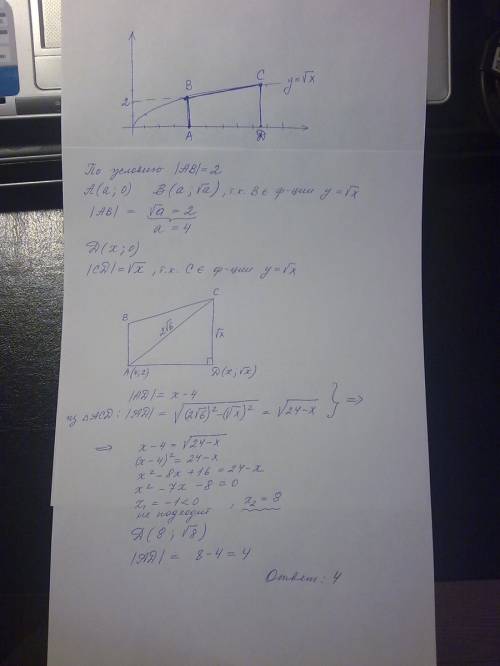 y = √x
B C
2
A D
По условию |AB| = 2
A(a; 0) B(a; √a), т.к. B ∈ ф-ции y = √x
|AB| = √a = 2
a = 4
D(x; 0)
|CD| = √x, т.к. C ∈ ф-ции y = √x
C
B
2√6
√x
A(4,2) D(x; √x)
|AD| = x - 4
из △ACD: |AD| = √((2√6)² - (√x)²) = √(24-x) } ⟹
⟹ x - 4 = √(24-x)
(x-4)² = 24-x
x² - 8x + 16 = 24 - x
x² - 7x - 8 = 0
x₁ = -1 < 0 , x₂ = 8
не подходит
D(8; √8)
|AD| = 8 - 4 = 4
Ответ: 4